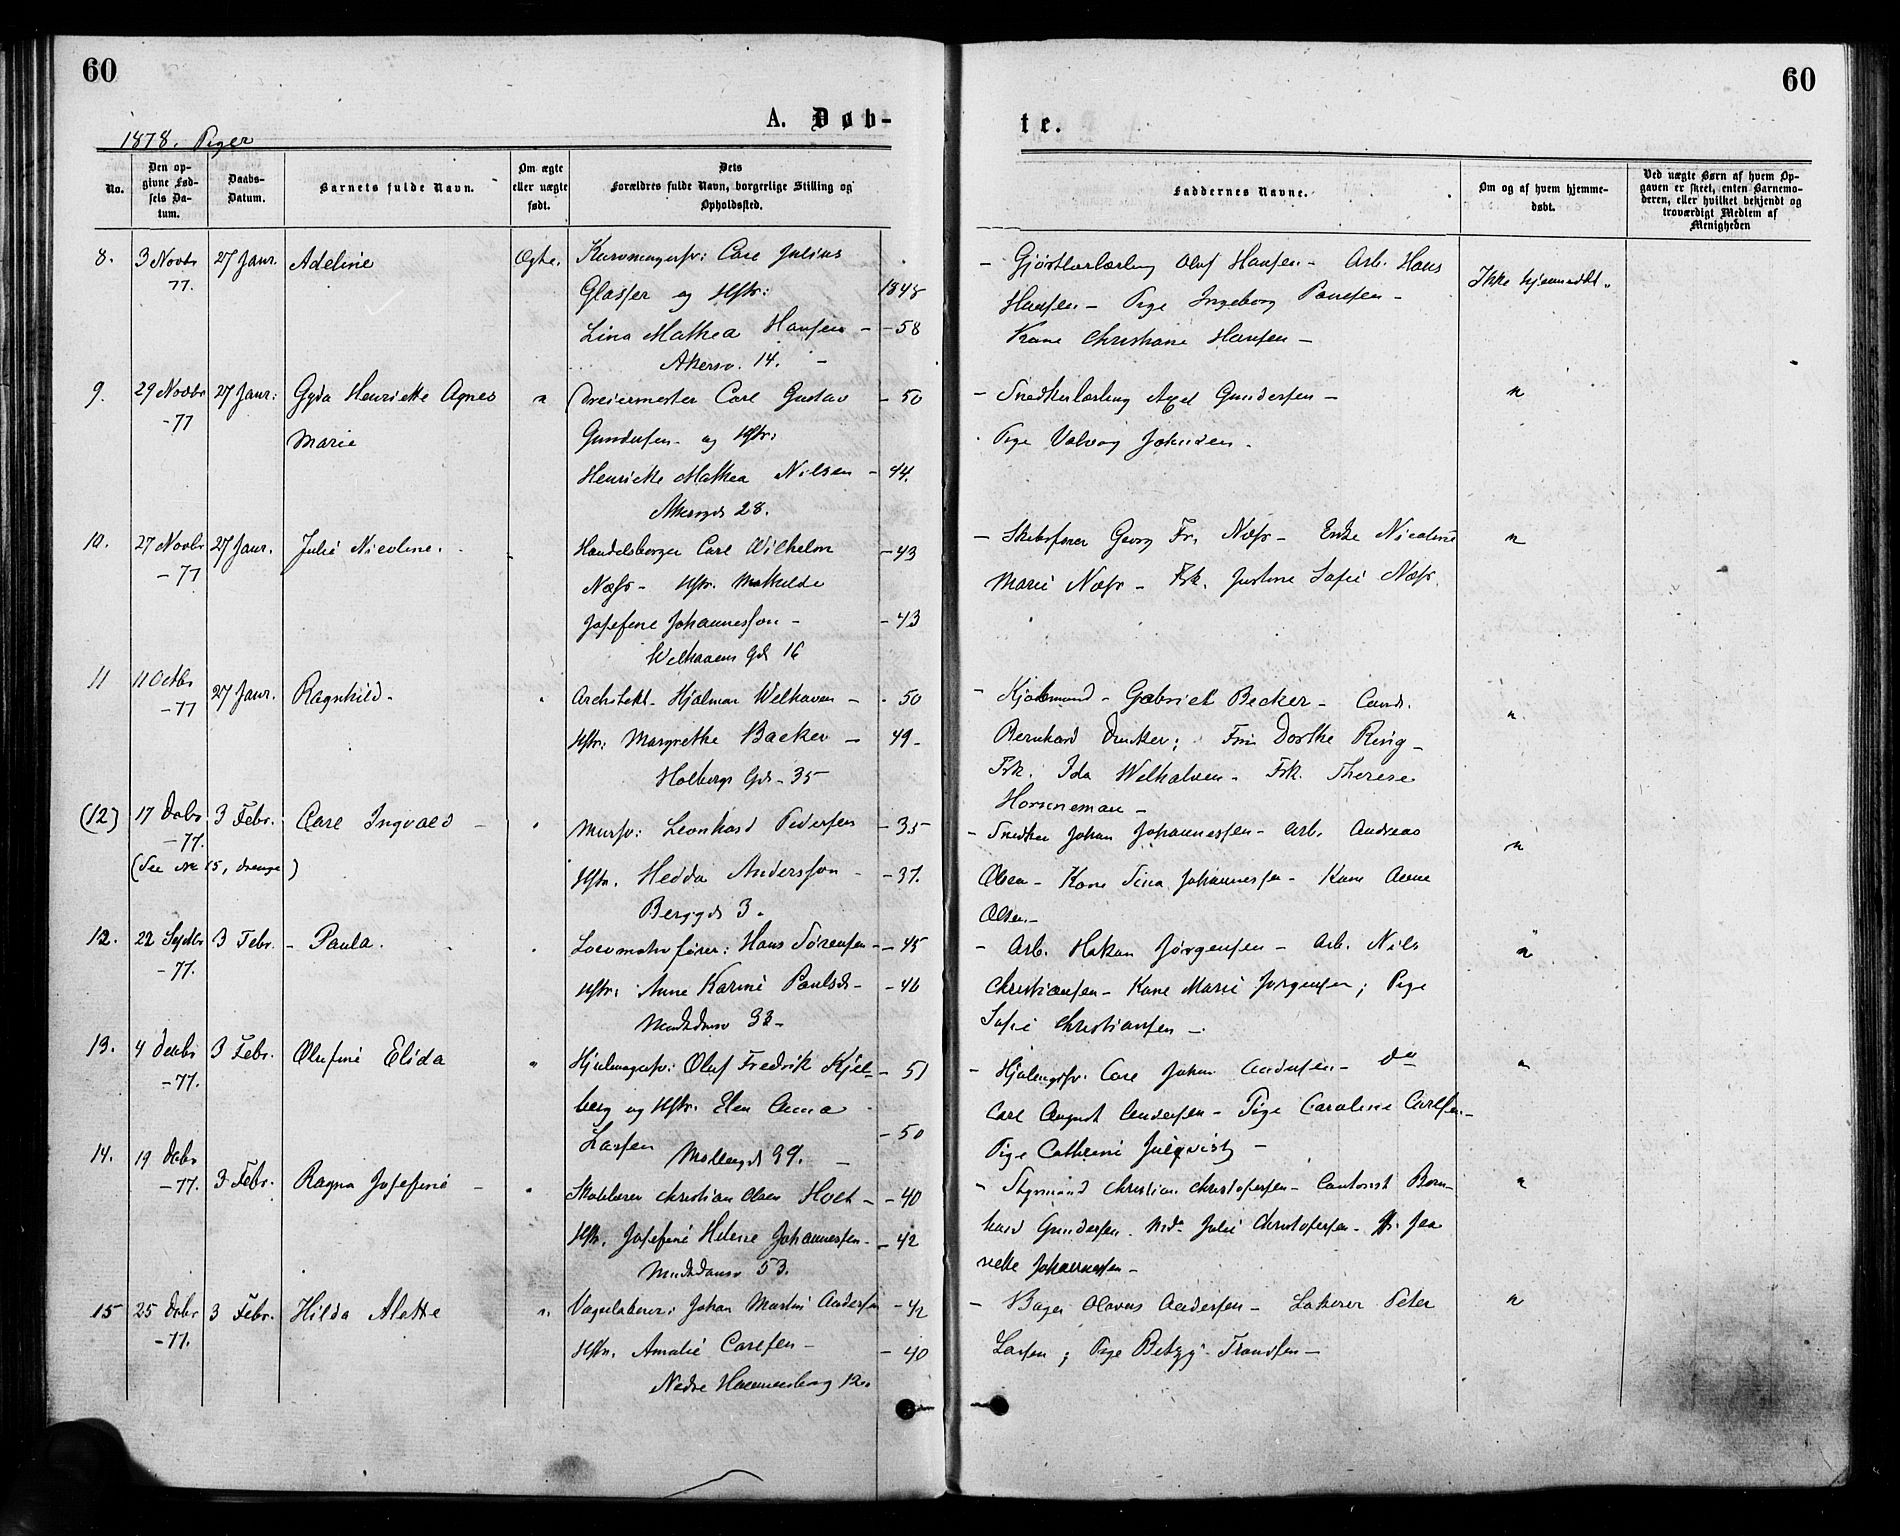 60
60
A. Døb-
te.
1878. Piger
No.
Den op-
givne Fød-
sels Da-
tum.
Daabs-
Datum.
Barnets fulde Navn.
Om ægte
eller uægte
født.
Dets
Forældres fulde Navn, borgerlige Stilling og
Opholdssted.
Faddernes Navne.
Om og af hvem hjemme-
døbt.
Ved uægte Børn af hvem Op-
gaven er skeet, enten Barnemo-
deren, eller hvilket bekjendt og
troværdigt Medlem af
Menigheden
8. 3 Novbr 27 Janr. Adeline Ægte. Carl Julius
77.
Glasser og Hstr: 1848
Lina Mathea Hansen - - 58
Akersv. 14. -
- Olaf Hansen - Arb. Hans
Hansen - Pige Ingeborg Paulsen -
Kone Christiane Hansen -
Ikke hjemmedøbt.
9. 29 Novbr 27 Janr: Gyda Henriette Agnes " Dreiermester Carl Gustav - 50
-77
Marie
Gundersen - og Hstr:
Henriette Mathea Nilsen - 44.
Akersgd 28.
- Snedkerlærling Axel Gundersen -
Pige Valborg Johnsen -
"
10. 27 Novbr 27 Janr. Julie Nicoline. Handelsborger Carl Wilhelm - 43
- 77
Næss - Hstr. Mathilde
Josefine Johannesson - - 43
Welhavens Gd 16
- Skibsfører Georg Fr. Næss - Enke Nicoline
Marie Næss - Frk. Justine Sofie Næss.
"
11 11 Octbr 27 Janr. Ragnhild - " Architekt - Hjalmar Welhaven - - 50
-77
Hstr: Margrethe Backer - 49 -
Holbergs Gd - 35
- Kjøbmand - Gabriel Becker - Cand.
Bernhard Dunker; Fru Dorthe Ring -
Frk. Ida Welhaven - Frk. Therese
Horneman -
"
(12) 17 Debr 3 Febr. Carl Ingvald - " Mursv: Leonhard Pedersen - 35
-77.
(See No 15, drenge)
Hstr. Hedda Andersson - - 37.
Berggd 3.
- Snedker Johan Johannessen - Arb. Andreas
Olsen - Kone Lina Johannessen - Kone Anne
Olsen -
"
12. 22 Septbr 3 Febr. - Paula. " Locomotivfører: Hans Sørensen - - 45
-77.
Hstr: Anne Karine Paulsd - - 46
33 -
- Arb. Hakan Jørgensen - Arb. Nils
Christiansen - Kone Marie Jørgensen; Pige
Sofie Christiansen -
"
13. 4 Decbr 3 Febr. Olufine Elida " Oluf Fredrik Kjel- - 51
-77.
berg og Hstr. Elen Anna
Larsen - 50
Møllergd 39. -
- Carl Johan Andersen - do
Carl August Andersen - Pige Caroline Carlsen -
Pige Cathrine Julqvist -
"
14. 19 Debr 3 Febr. Ragna Josefine - " Christian Olsen Holt - - 40
-77.
Hstr. Josefine Helene Johannessen - - 42
53.
- Styrmand Christian Christofersen - Cantorist Bern-
hard Gundersen - Md. Julie Christofersen - Jea
nette Johannessen -
"
15 25 Debr 3 Febr. Hilda Alette " Johan Martin Andersen - 42
-77.
Hstr. Amalie Carlsen - - 40
Nedre Hammersborg 12.
- Bager Olavus Andersen - Lakerer Peter
Larsen; Pige Betzy Frandsen -
"